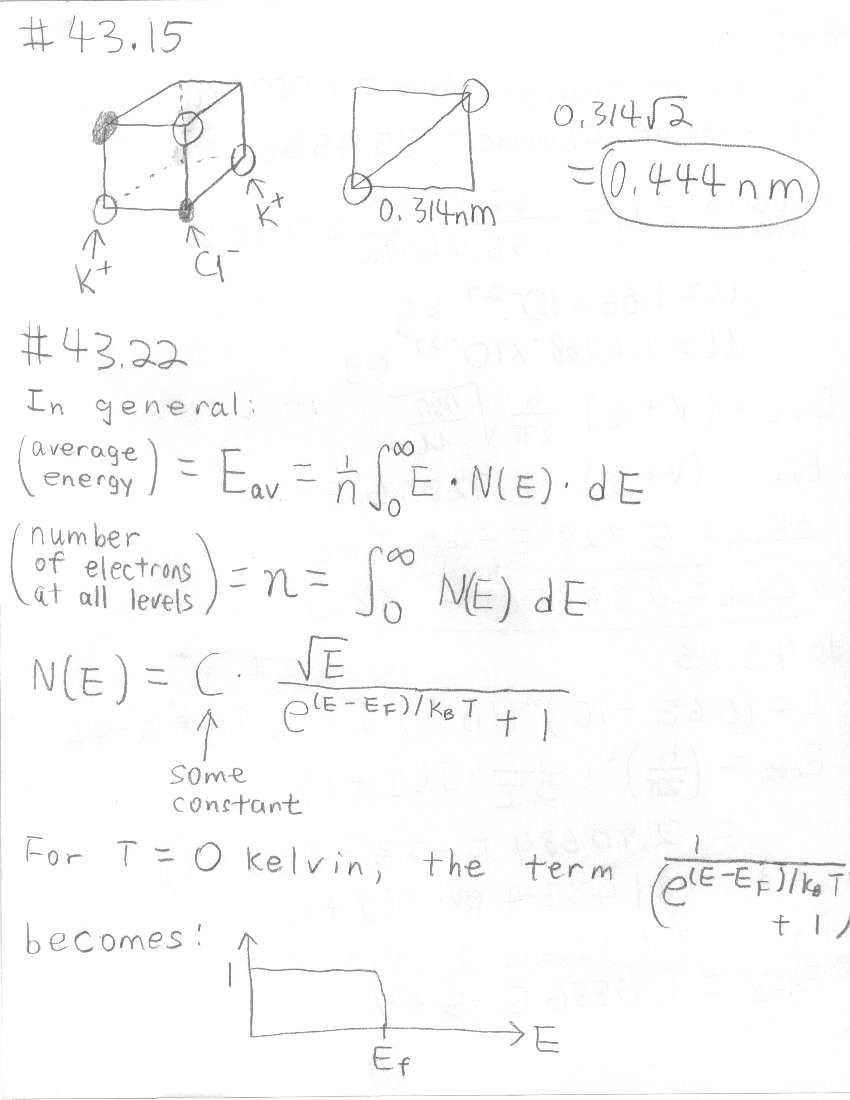 # 43.15
0.314√2
= 0.444 nm
0.314nm
K⁺
Cl⁻
K⁺
# 43.22
In general:
(average energy) = E_av = 1/n ∫₀^∞ E · N(E) · dE
(number of electrons at all levels) = n = ∫₀^∞ N(E) dE
N(E) = C · √E / (e^((E-E_F)/k_B T) + 1)
some
constant
For T = 0 kelvin, the term 1/(e^((E-E_F)/k_B T) + 1)
becomes:
1
E
E_f